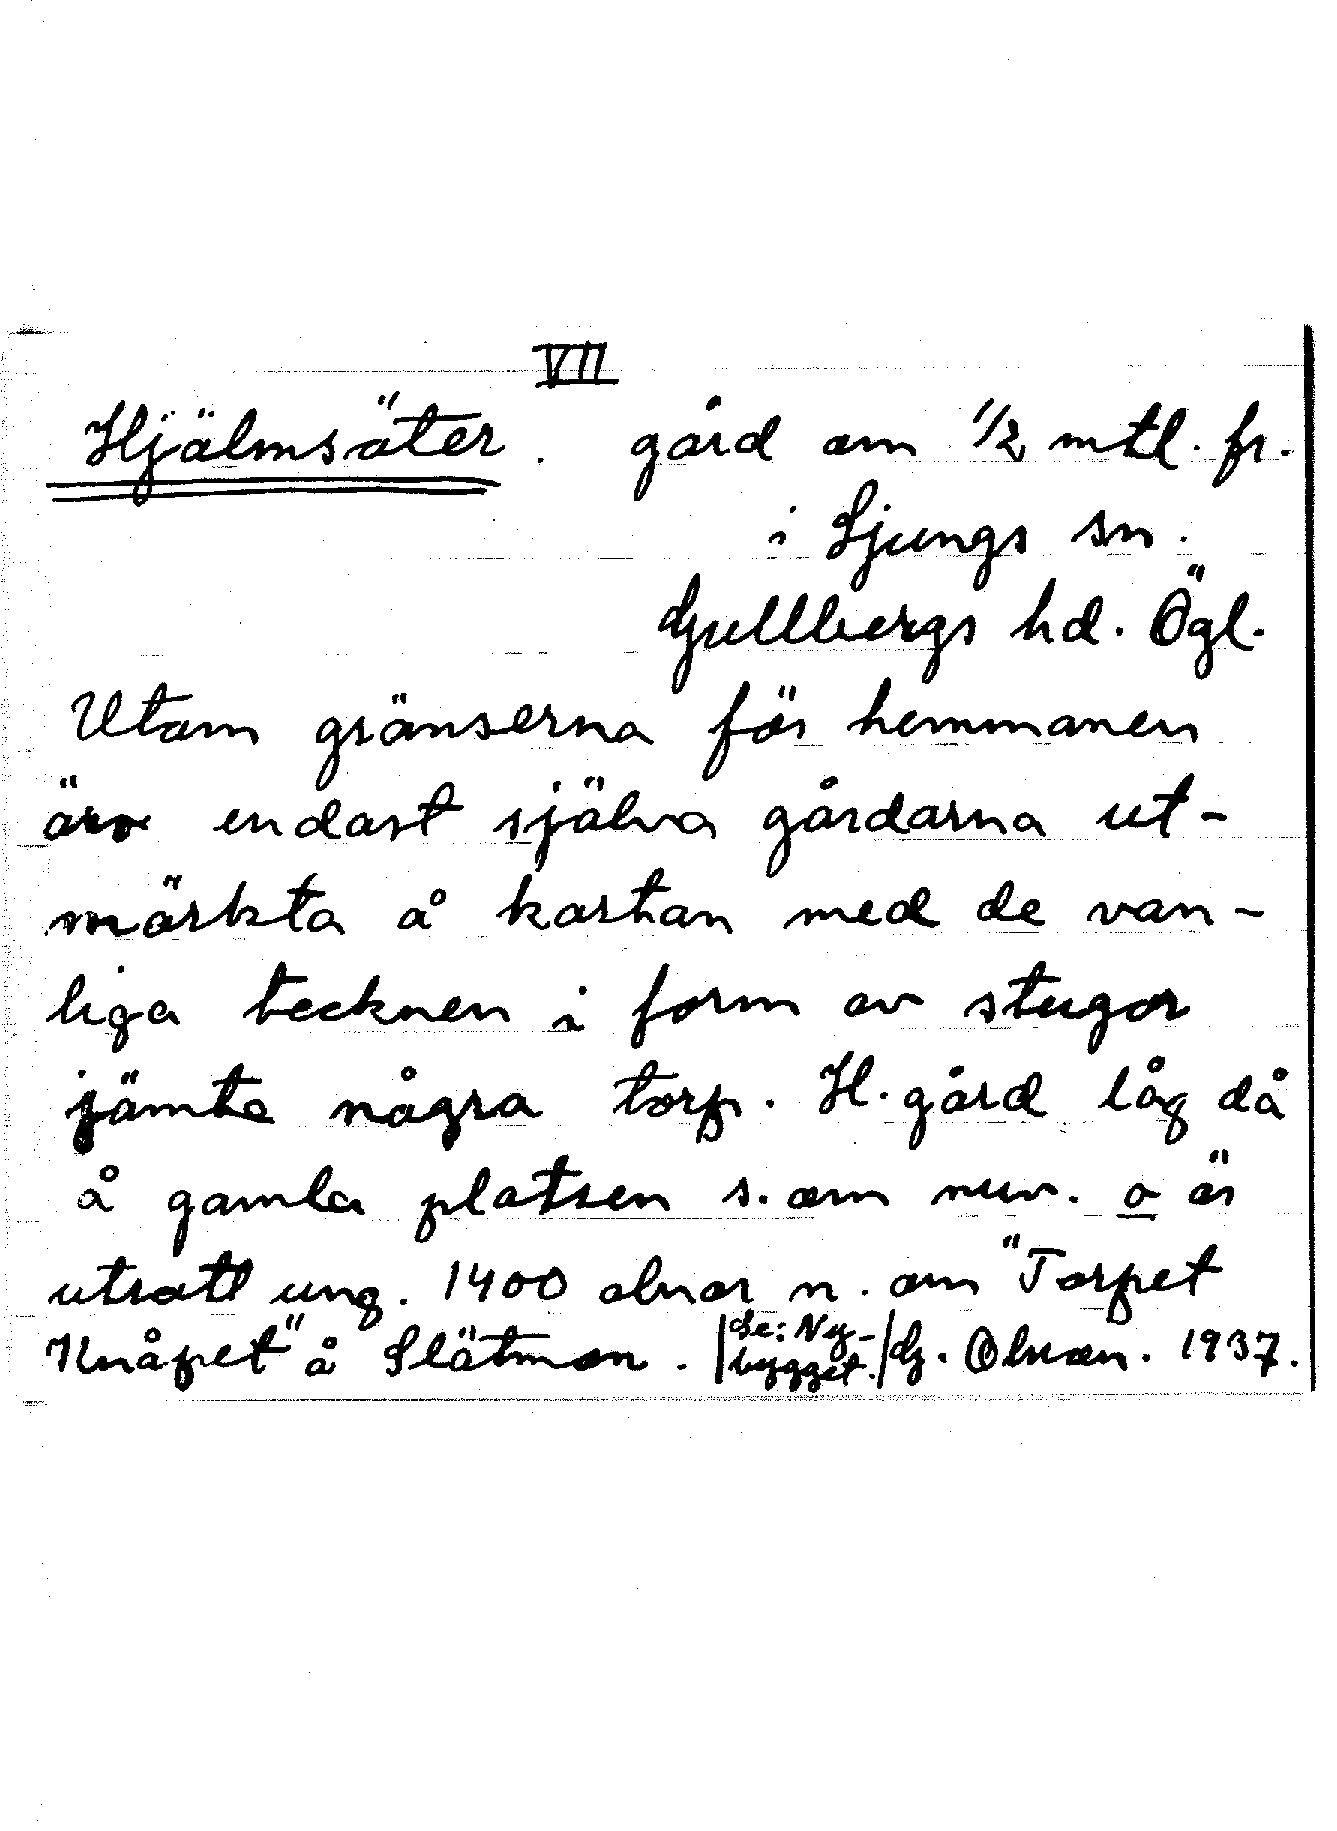 VII
Hjälmsäter. gård om 1/2 mtl. fr.
i Ljungs sn.
Gullbergs hd. Ögl.
Utom gränserna för hemmanen
äro endast själva gårdarna ut-
märkta å kartan med de van-
liga tecknen i form av stugor
jämte några torp. H. gård låg då
å gamla platsen s. om nuv. o är
utsatt ung. 1400 alnar n. om "Torpet
Knåpet" å Slätmon. /Se: Ny-
bygget./ G. Olsson. 1937.